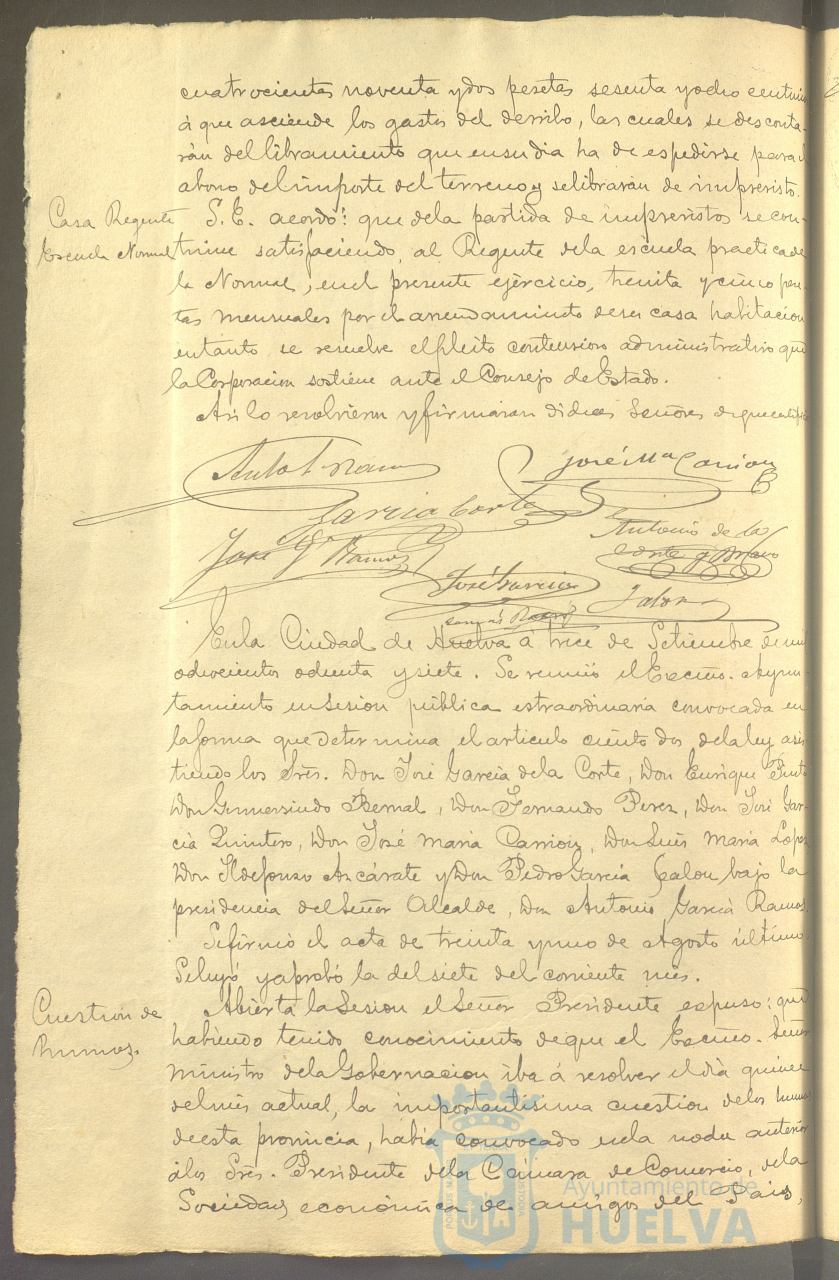 cuatrocientas noventa y dos pesetas sesenta y ocho centimos
á que asciende los gastos del derribo, las cuales se desconta-
rán del libramiento que en su dia ha de espedirse para el
abono del importe del terreno y se librarán de imprevisto.
Casa Regente
Escuela Normal
S. E. acordó: que de la partida de imprevistos se con-
tinue satisfaciendo, al Regente de la escuela practica de
la Normal, en el presente ejercicio, treinta y cinco pese-
tas mensuales por el arrendamiento de su casa habitacion
en tanto se resuelve el pleito contencioso administrativo que
la Corporacion sostiene ante el Consejo de Estado.
Asi lo resolvieron y firmaran dichos Señores de que certifico
Antº G Ramos
José Mª Carrion
Garcia Corte
José Gª
Antonio de la
Corte y Bravo
José Garcia
Jalon
En la Ciudad de Huelva á trece de Setiembre de mil
ochocientos ochenta y siete. Se reunió el Excmo. Ayun-
tamiento en Sesion pública estraordinaria convocada en
la forma que determina el articulo ciento dos de la ley asis
tiendo los Sres. Don José Garcia de la Corte, Don Enrique
Don Gumersindo Bernal, Don Fernando Perez, Don José Gar-
cia Quintero, Don José Maria Carrion, Don Luis Maria Lopez
Don Ildefonso Azcárate y Don Pedro Garcia Jalon bajo la
presidencia del Señor Alcalde, Don Antonio Garcia Ramos.
Se firmó el acta de treinta y uno de Agosto último
Se leyó y aprobó la del siete del corriente mes.
Cuestion de
humos.
Abierta la Sesion el Señor Presidente espuso: que
habiendo tenido conocimiento de que el Excmo. Señor
Ministro de la Gobernacion iba á resolver el dia quince
del mes actual, la importantisima cuestion de los humos
de esta provincia, habia convocado en la noche anterior
á los Sres. Presidente de la Cámara de Comercio, de la
Sociedad económica de amigos del Pais,
Ayuntamiento de
HUELVA